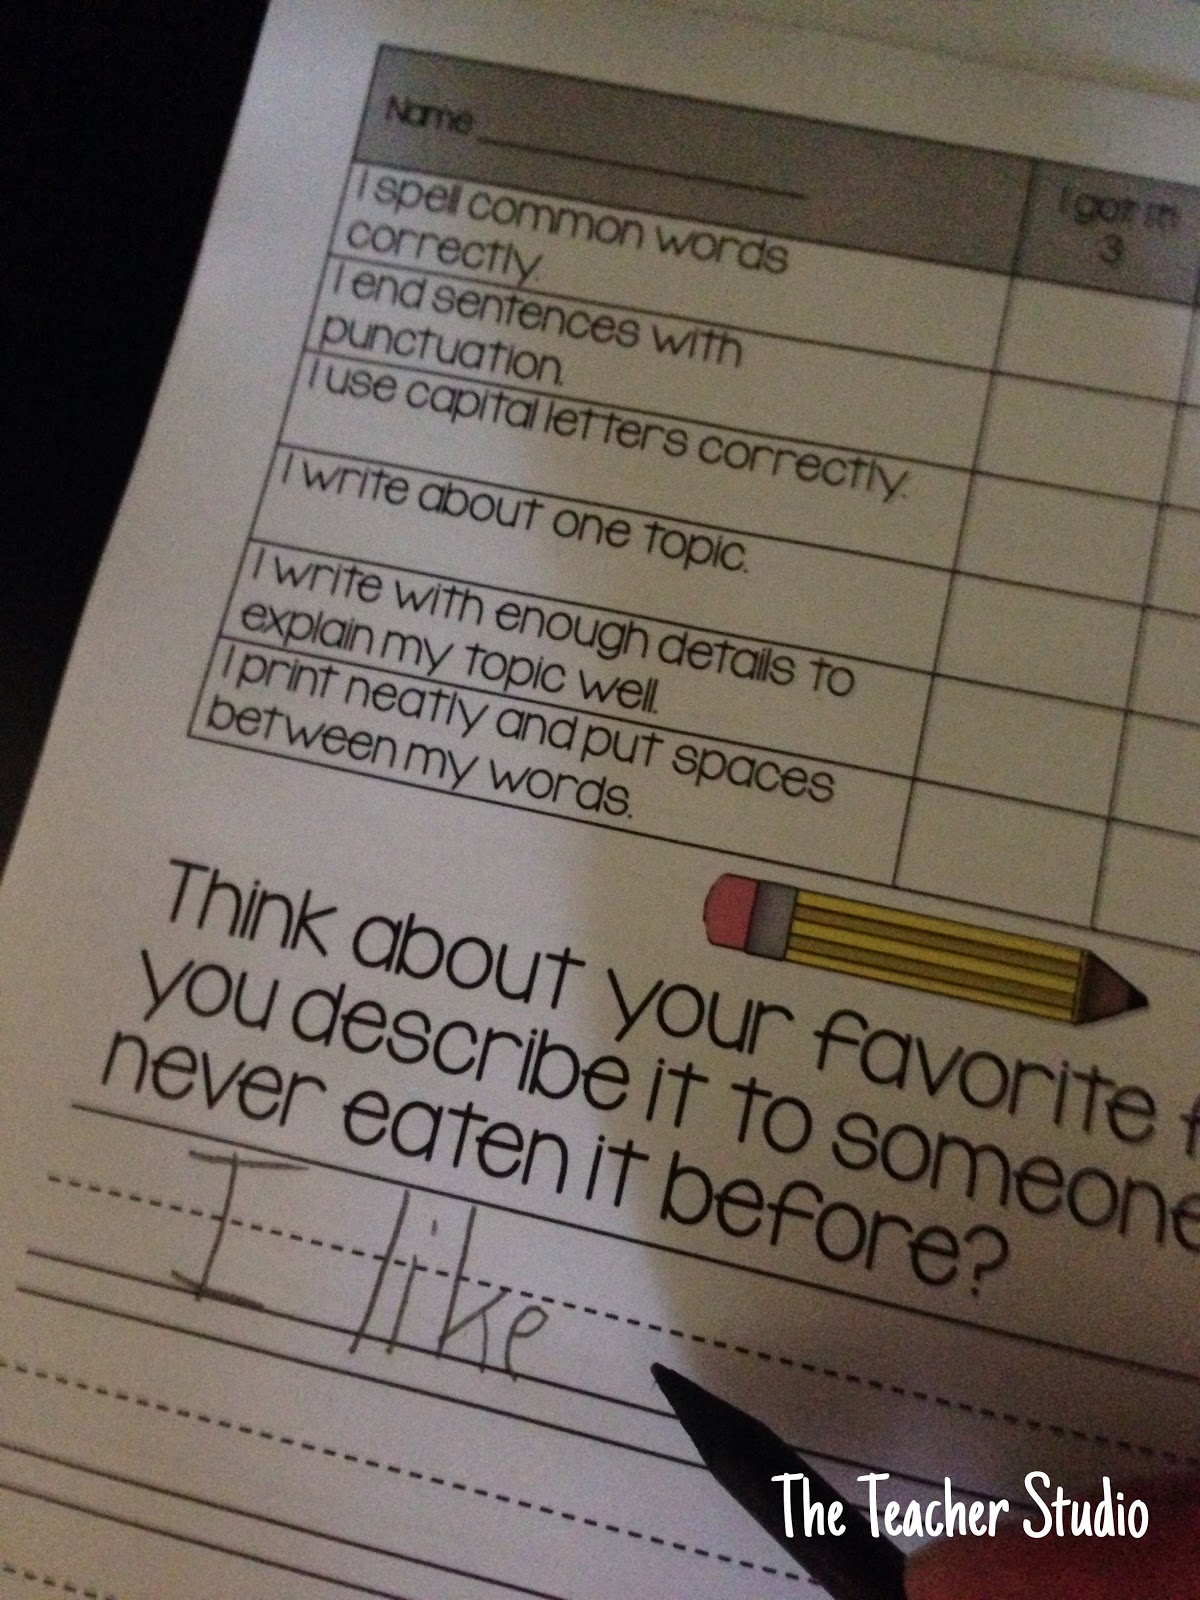 Name
I got it!
3
I spell common words
correctly.
I end sentences with
punctuation.
I use capital letters correctly.
I write about one topic.
I write with enough details to
explain my topic well.
I print neatly and put spaces
between my words.
Think about your favorite
you describe it to someone
never eaten it before?
I like
The Teacher Studio